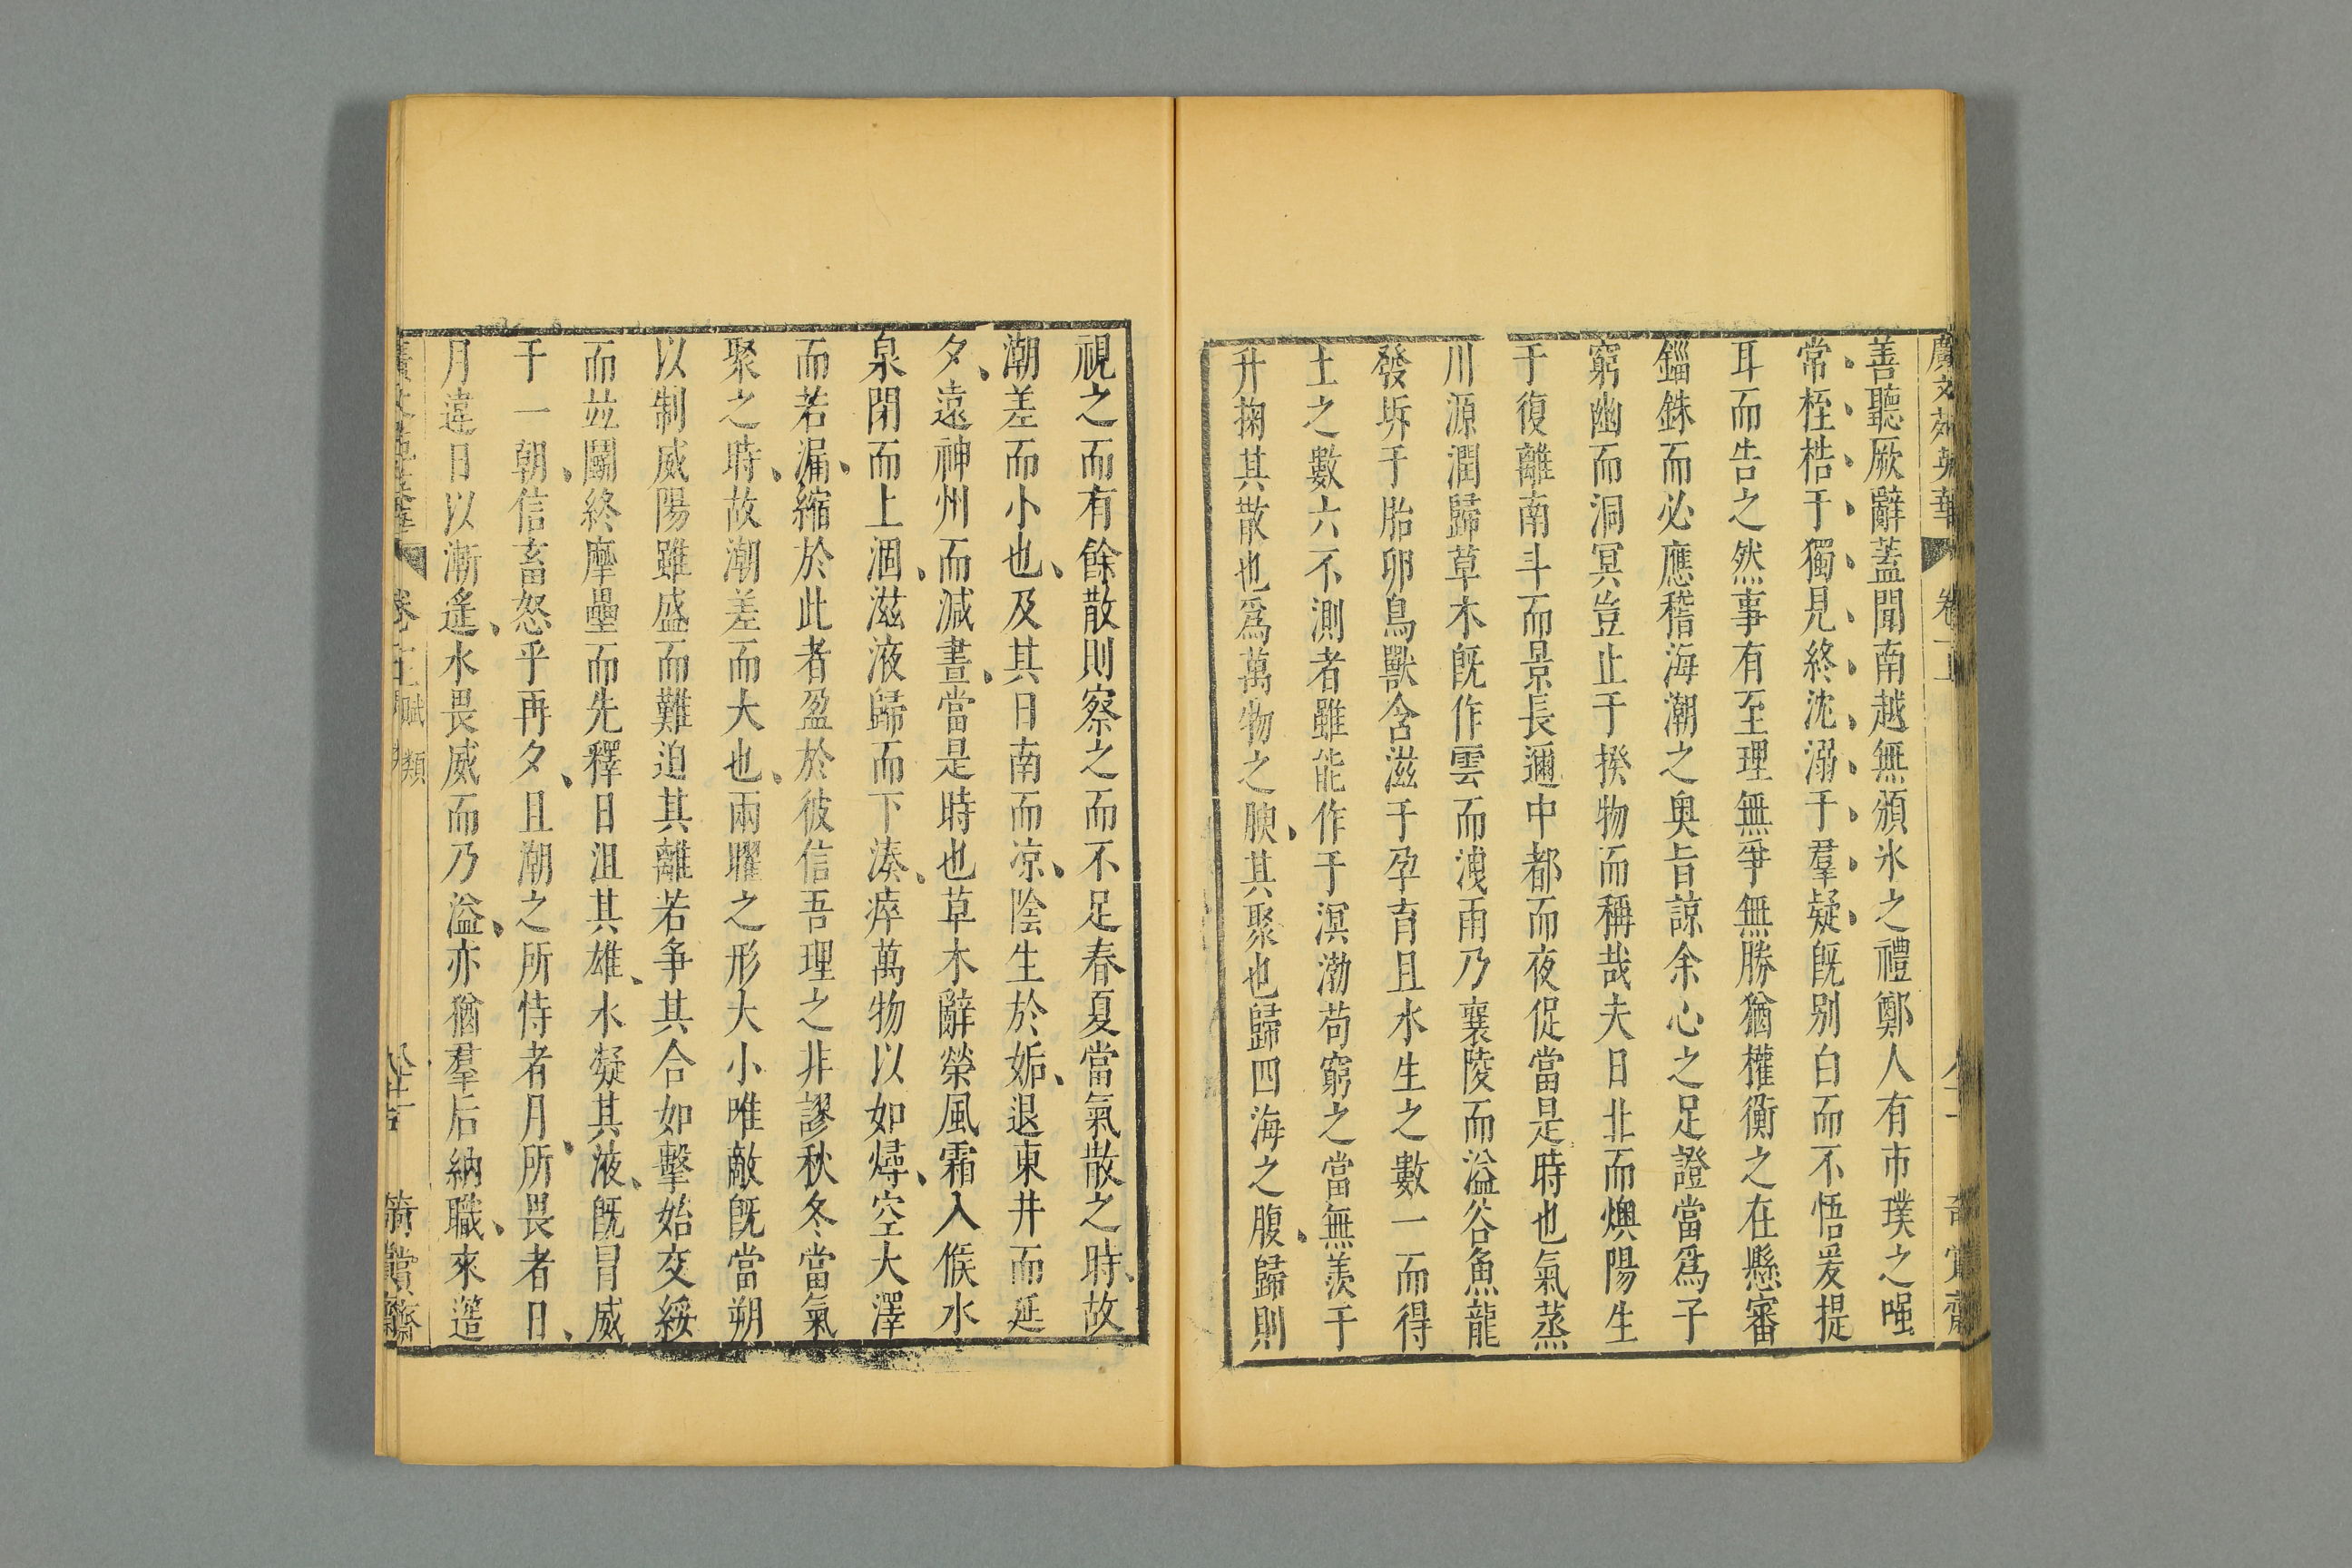 廣文苑英華 卷一上 奇賞齋
善聽厥辭蓋聞南越無頒氷之禮鄭人有市璞之嗤
常桎梏于獨見終沈溺于羣疑旣别白而不悟爰提
耳而告之然事有至理無爭無勝猶權衡之在懸審
錙銖而必應稽海潮之奥旨諒余心之足證當爲子
窮幽而洞冥豈止于揆物而稱哉夫日北而燠陽生
于復離南斗而景長邇中都而夜促當是時也氣蒸
川源潤歸草木旣作雲而洩雨乃襄陵而溢谷魚龍
發坼于胎卵鳥獸含滋于孕育且水生之數一而得
土之數六不測者雖能作于溟渤苟窮之當無羨于
升掬其散也爲萬物之腴其聚也歸四海之腹歸則
視之而有餘散則察之而不足春夏當氣散之時故
潮差而小也及其日南而凉陰生於姤退東井而延
夕遠神州而減晝當是時也草木辭榮風霜入候水
泉閉而上涸滋液歸而下湊瘁萬物以如燖空大澤
而若漏縮於此者盈於彼信吾理之非謬秋冬當氣
聚之時故潮差而大也兩曜之形大小唯敵旣當朔
以制威陽雖盛而難迫其離若爭其合如擊始交綏
而並鬭終摩壘而先釋日沮其雄水凝其液旣冒威
于一朝信畜怒乎再夕且潮之所恃者月所畏者日
月違日以漸遙水畏威而乃溢亦猶羣后納職來造
賦類 奇賞齋